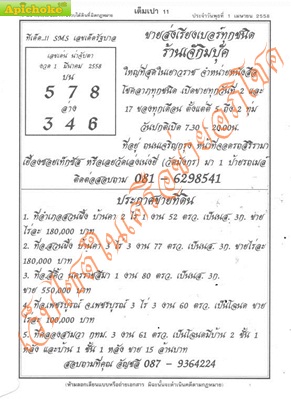 Apichoke
เดิมเปา 11
ประจำวันพุธที่ 1 เมษายน 2558
ทีเด็ด.!! SMS เลขเด็ดรัฐบาล
เลขเด่น น่าจับตา
งวด 1 มีนาคม 2558
บน
5 7 8
ล่าง
3 4 6
ขายส่งเรียงเบอร์ทุกชนิด
ร้านเจ๊กิมบุ๊ค
ใหญ่ที่สุดในเยาวราช จำหน่ายหนังสือ
โชคลาภทุกชนิด เปิดขายทุกวันที่ 2 และ
17 ของทุกเดือน ตั้งแต่ตี 5 ถึง 2 ทุ่ม
วันปกติเปิด 7.30 - 20.00น.
ที่อยู่ ถนนเจริญกรุง
เยื้องซอยเท็กซัส หรือเลยวัดเล่งเน่ยยี่ (วัดมังกร) มา 1 ป้ายรถเมล์
ติดต่อสอบถาม 081 - 6298541
ประกาศขายที่ดิน
1. ที่อำเภอสวนผึ้ง บ้านคา 2 ไร่ 1 งาน 52 ตรว. เป็นนส. 3ก. ขาย
ไร่ละ 180,000 บาท
2. ที่สวนผึ้ง บ้านคา 3 ไร่ 3 งาน 77 ตรว. เป็นนส. 3ก. ขายไร่ละ
180,000 บาท
3. ที่อ.สีคิ้ว นครราชสีมา 1 งาน 80 ตรว. เป็นนส. 3ก.
ขาย 550,000 บาท
4. ที่จ.เพชรบูรณ์ อ.เพชรบูรณ์ 3 ไร่ 3 งาน 60 ตรว. เป็นโฉนด ขาย
ไร่ละ 100,000 บาท
5. ที่คลองสามวา กทม. 3 งาน 61 ตรว. เป็นโฉนดมีบ้าน 2 ชั้น 1
หลัง และบ้าน 1 ชั้น 1 หลัง ขาย 15 ล้านบาท
สอบถามที่คุณ อัญชลี 087 - 9364224